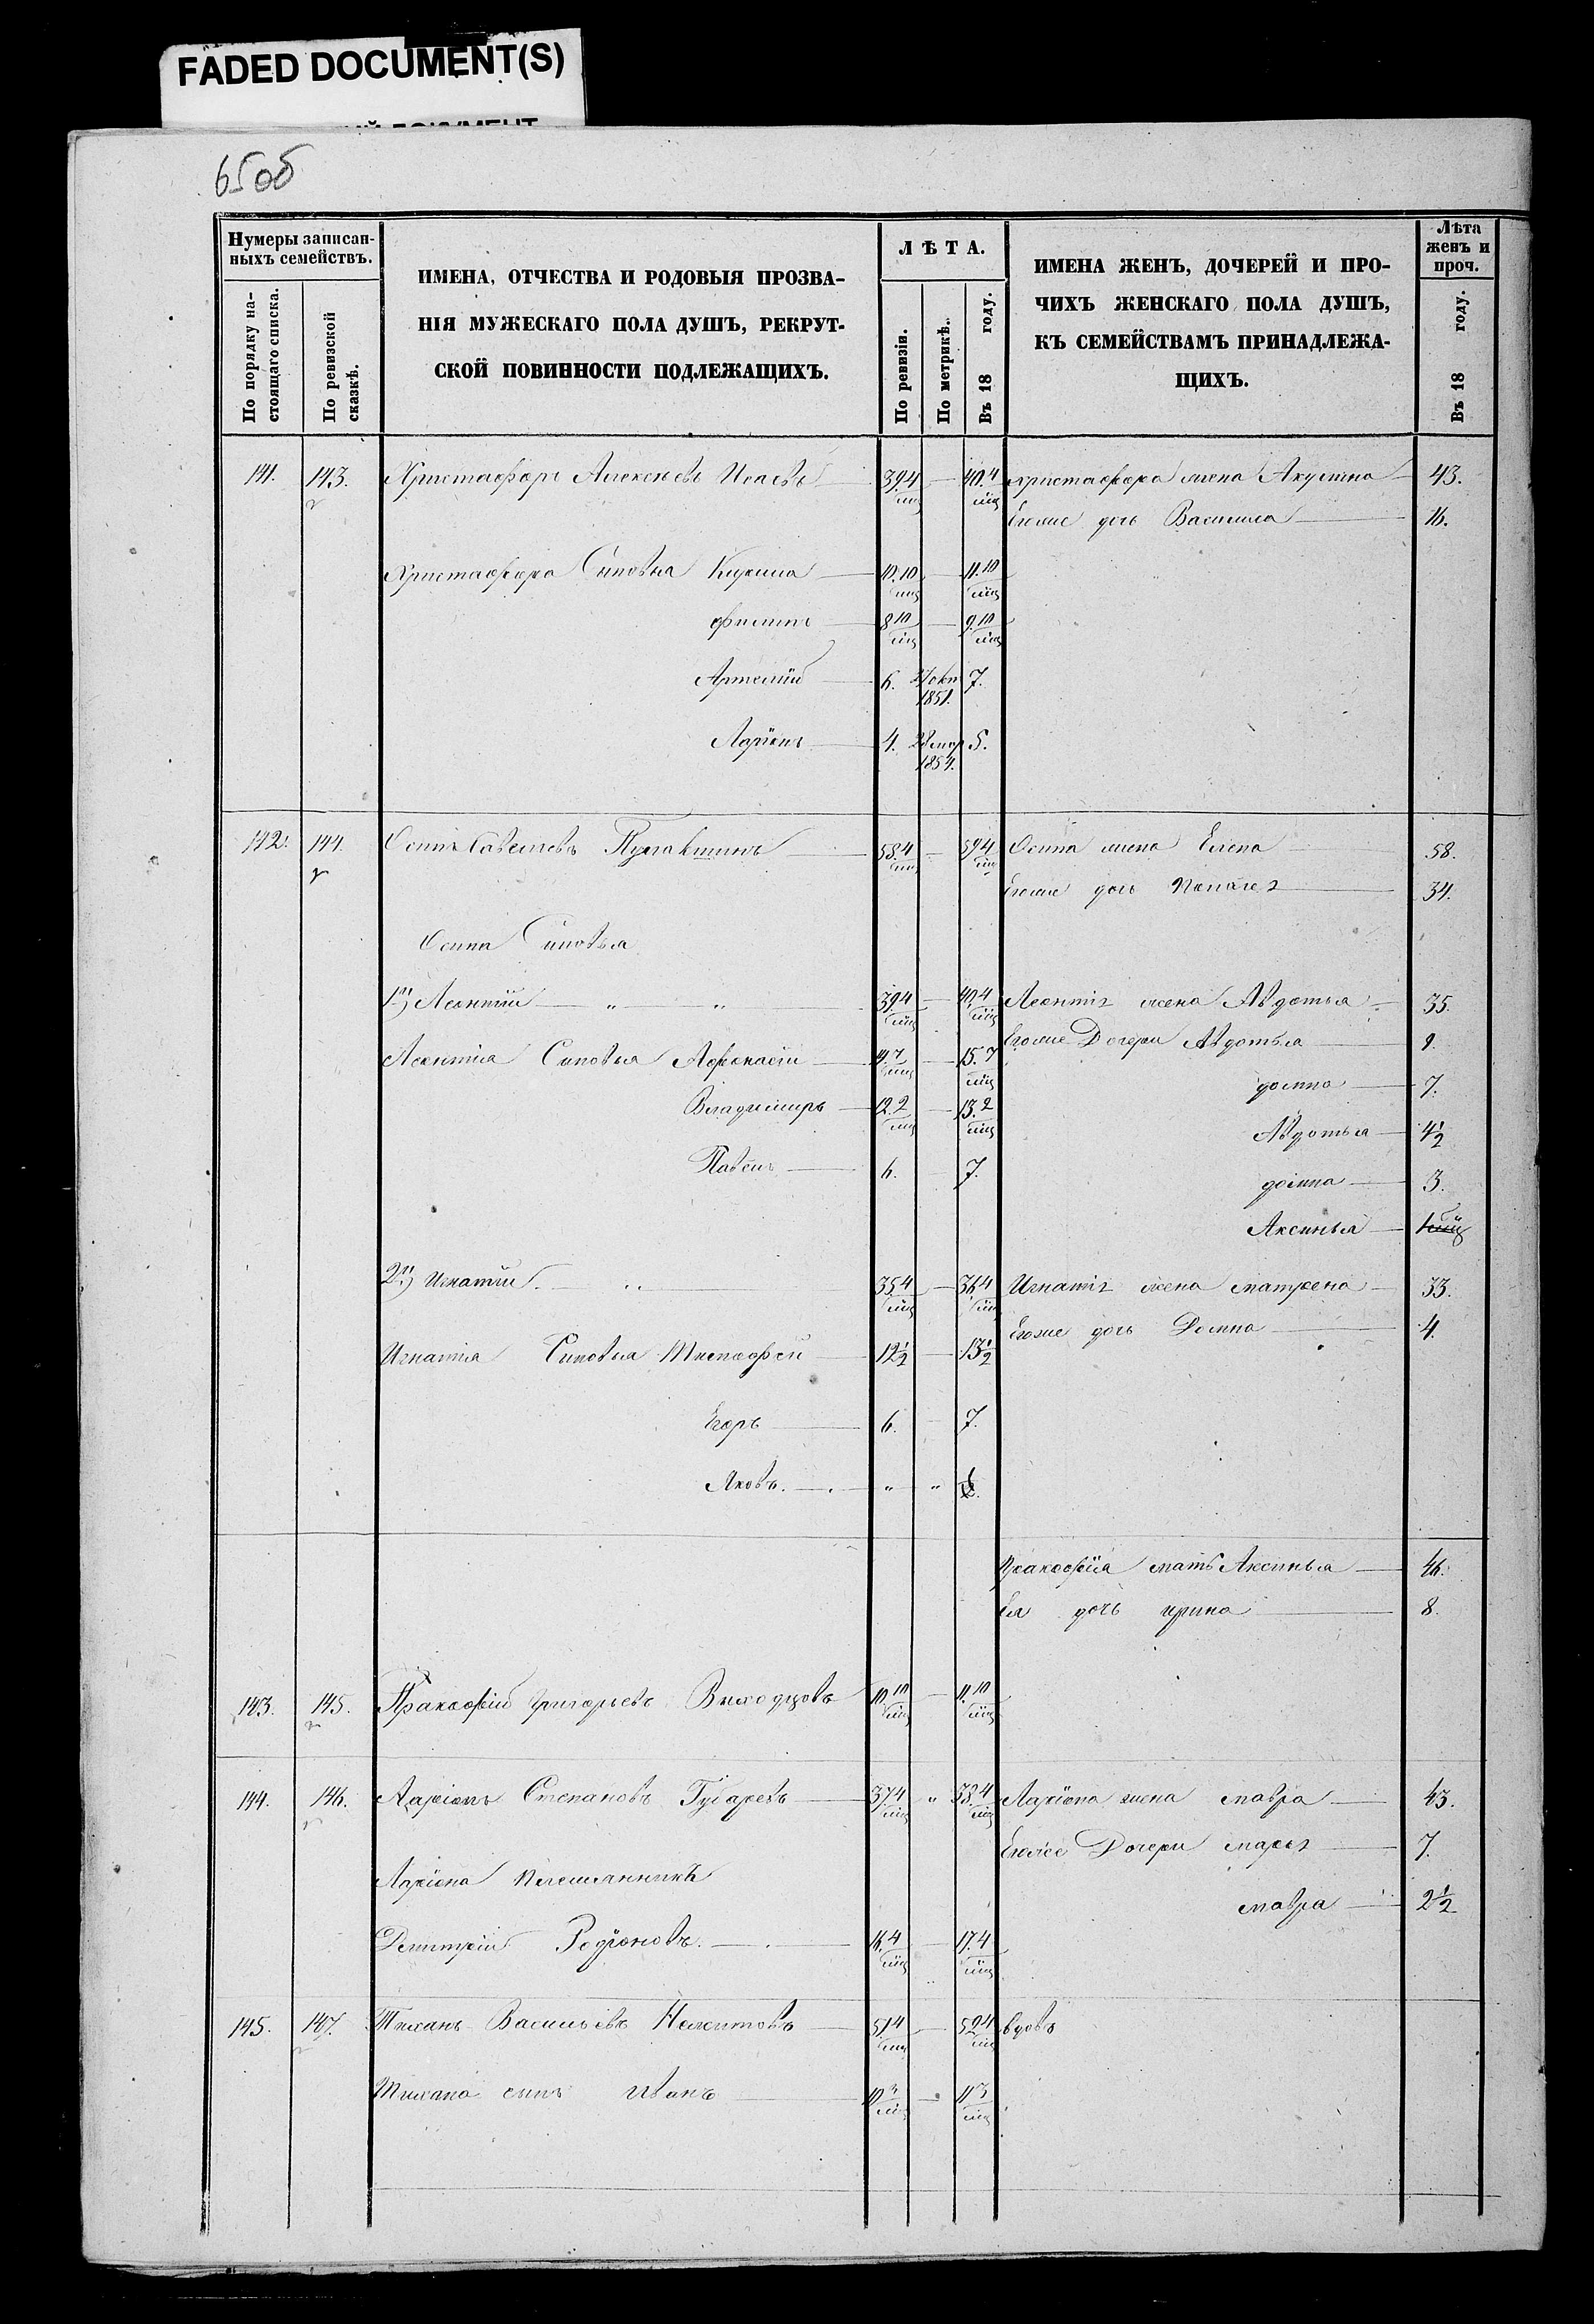 FADED DOCUMENT(S)
65об
Нумеры записан-
ныхъ семействъ.
По порядку на-
стоящаго списка.
По ревизской
сказкѣ.
ИМЕНА, ОТЧЕСТВА И РОДОВЫЯ ПРОЗВА-
НІЯ МУЖЕСКАГО ПОЛА ДУШЪ, РЕКРУТ-
СКОЙ ПОВИННОСТИ ПОДЛЕЖАЩИХЪ.
ЛѢТА.
По ревизіи.
По метрикѣ.
Въ 18 году.
ИМЕНА ЖЕНЪ, ДОЧЕРЕЙ И ПРО-
ЧИХЪ ЖЕНСКАГО ПОЛА ДУШЪ,
КЪ СЕМЕЙСТВАМЪ ПРИНАДЛЕЖА-
ЩИХЪ.
Лѣта
женъ и
проч.
Въ 18 году.
141. 143. Христафоръ Алексѣевъ Исаевъ 39.4 мц 40.4 мц Христафора жена Акулина 43.
Егоже дочь Василиса 16.
Христафора Сыновья Кирила 10.10 мц 11.10 мц
филипъ 8.10 мц 9.10 мц
Артемій 6. окт 1851. 7.
Ларіонъ 4. 1854. 5.
142. 144. Осипъ Савельевъ 58.4 мц 59.4 мц Осипа жена Елена 58.
Егоже дочь 34.
Осипа Сыновья
1й) Леонтій " " 39.4 мц 40.4 мц Леонтія жена Авдотья 35.
Леонтія Сыновья Афонасій 14.7 мц 15.7 мц Егоже Дочери Авдотья 9.
домна 7.
Владимиръ 12.2 мц 13.2 мц
Авдотья 4½
Павелъ 6. 7.
домна 3.
Аксинья
2й) Игнатій 35.4 мц 36.4 мц Игнатія жена матрена 33.
Егоже дочь Домна 4.
Игнатія Сыновья Тимофей 12½ 13½
Егоръ 6. 7.
Яковъ. " "
Пракофія мать Аксинья 46.
Ея дочь ирина 8.
143. 145. Пракофій Григорьевъ Выходцовъ 10.10 мц 11.10 мц
144. 146. Ларіонъ Степановъ Губаревъ 37.4 мц " 38.4 мц Ларіона жена мавра 43.
Егоже Дочери марья 7.
Ларіона племянникъ
мавра 2½
Дмитрій Родіоновъ. 16.4 мц 17.4 мц
145. 147. Тиханъ Васильевъ 51.4 мц 52.4 мц вдовъ
Тихана сынъ иванъ 10.3 мц 11.3 мц